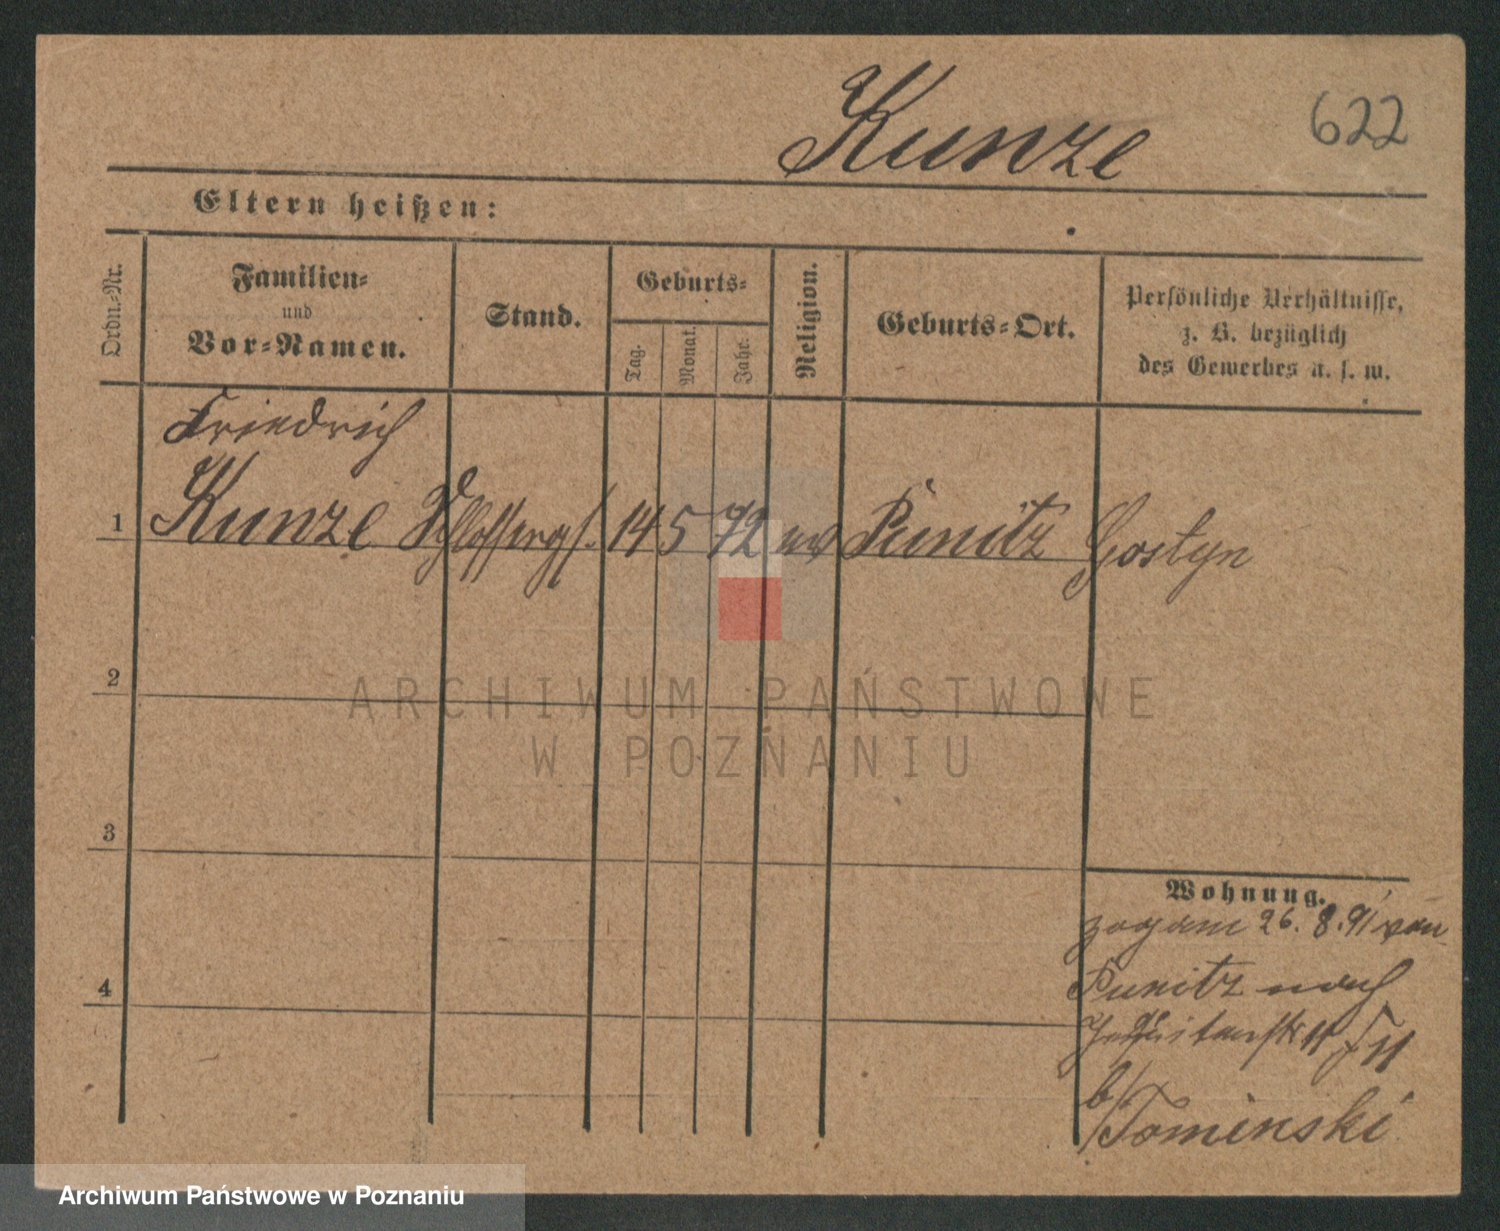 Kunze
622
Eltern heißen:
Ordn.-Nr.
Familien-
und
Vor-Namen.
Stand.
Geburts-
Tag.
Monat.
Jahr.
Religion.
Geburts-Ort.
Persönliche Verhältnisse,
z. B. bezüglich
des Gewerbes u. s. w.
Friedrich
1 Kunze Schlosserges. 14 5 72 ev Punitz Gostyn
2
3
4
Wohnung.
zog am 26. 8. 91 von
Punitz nach
Jesuitenstr 11
b/
Tominski
ARCHIWUM PAŃSTWOWE
W POZNANIU
Archiwum Państwowe w Poznaniu